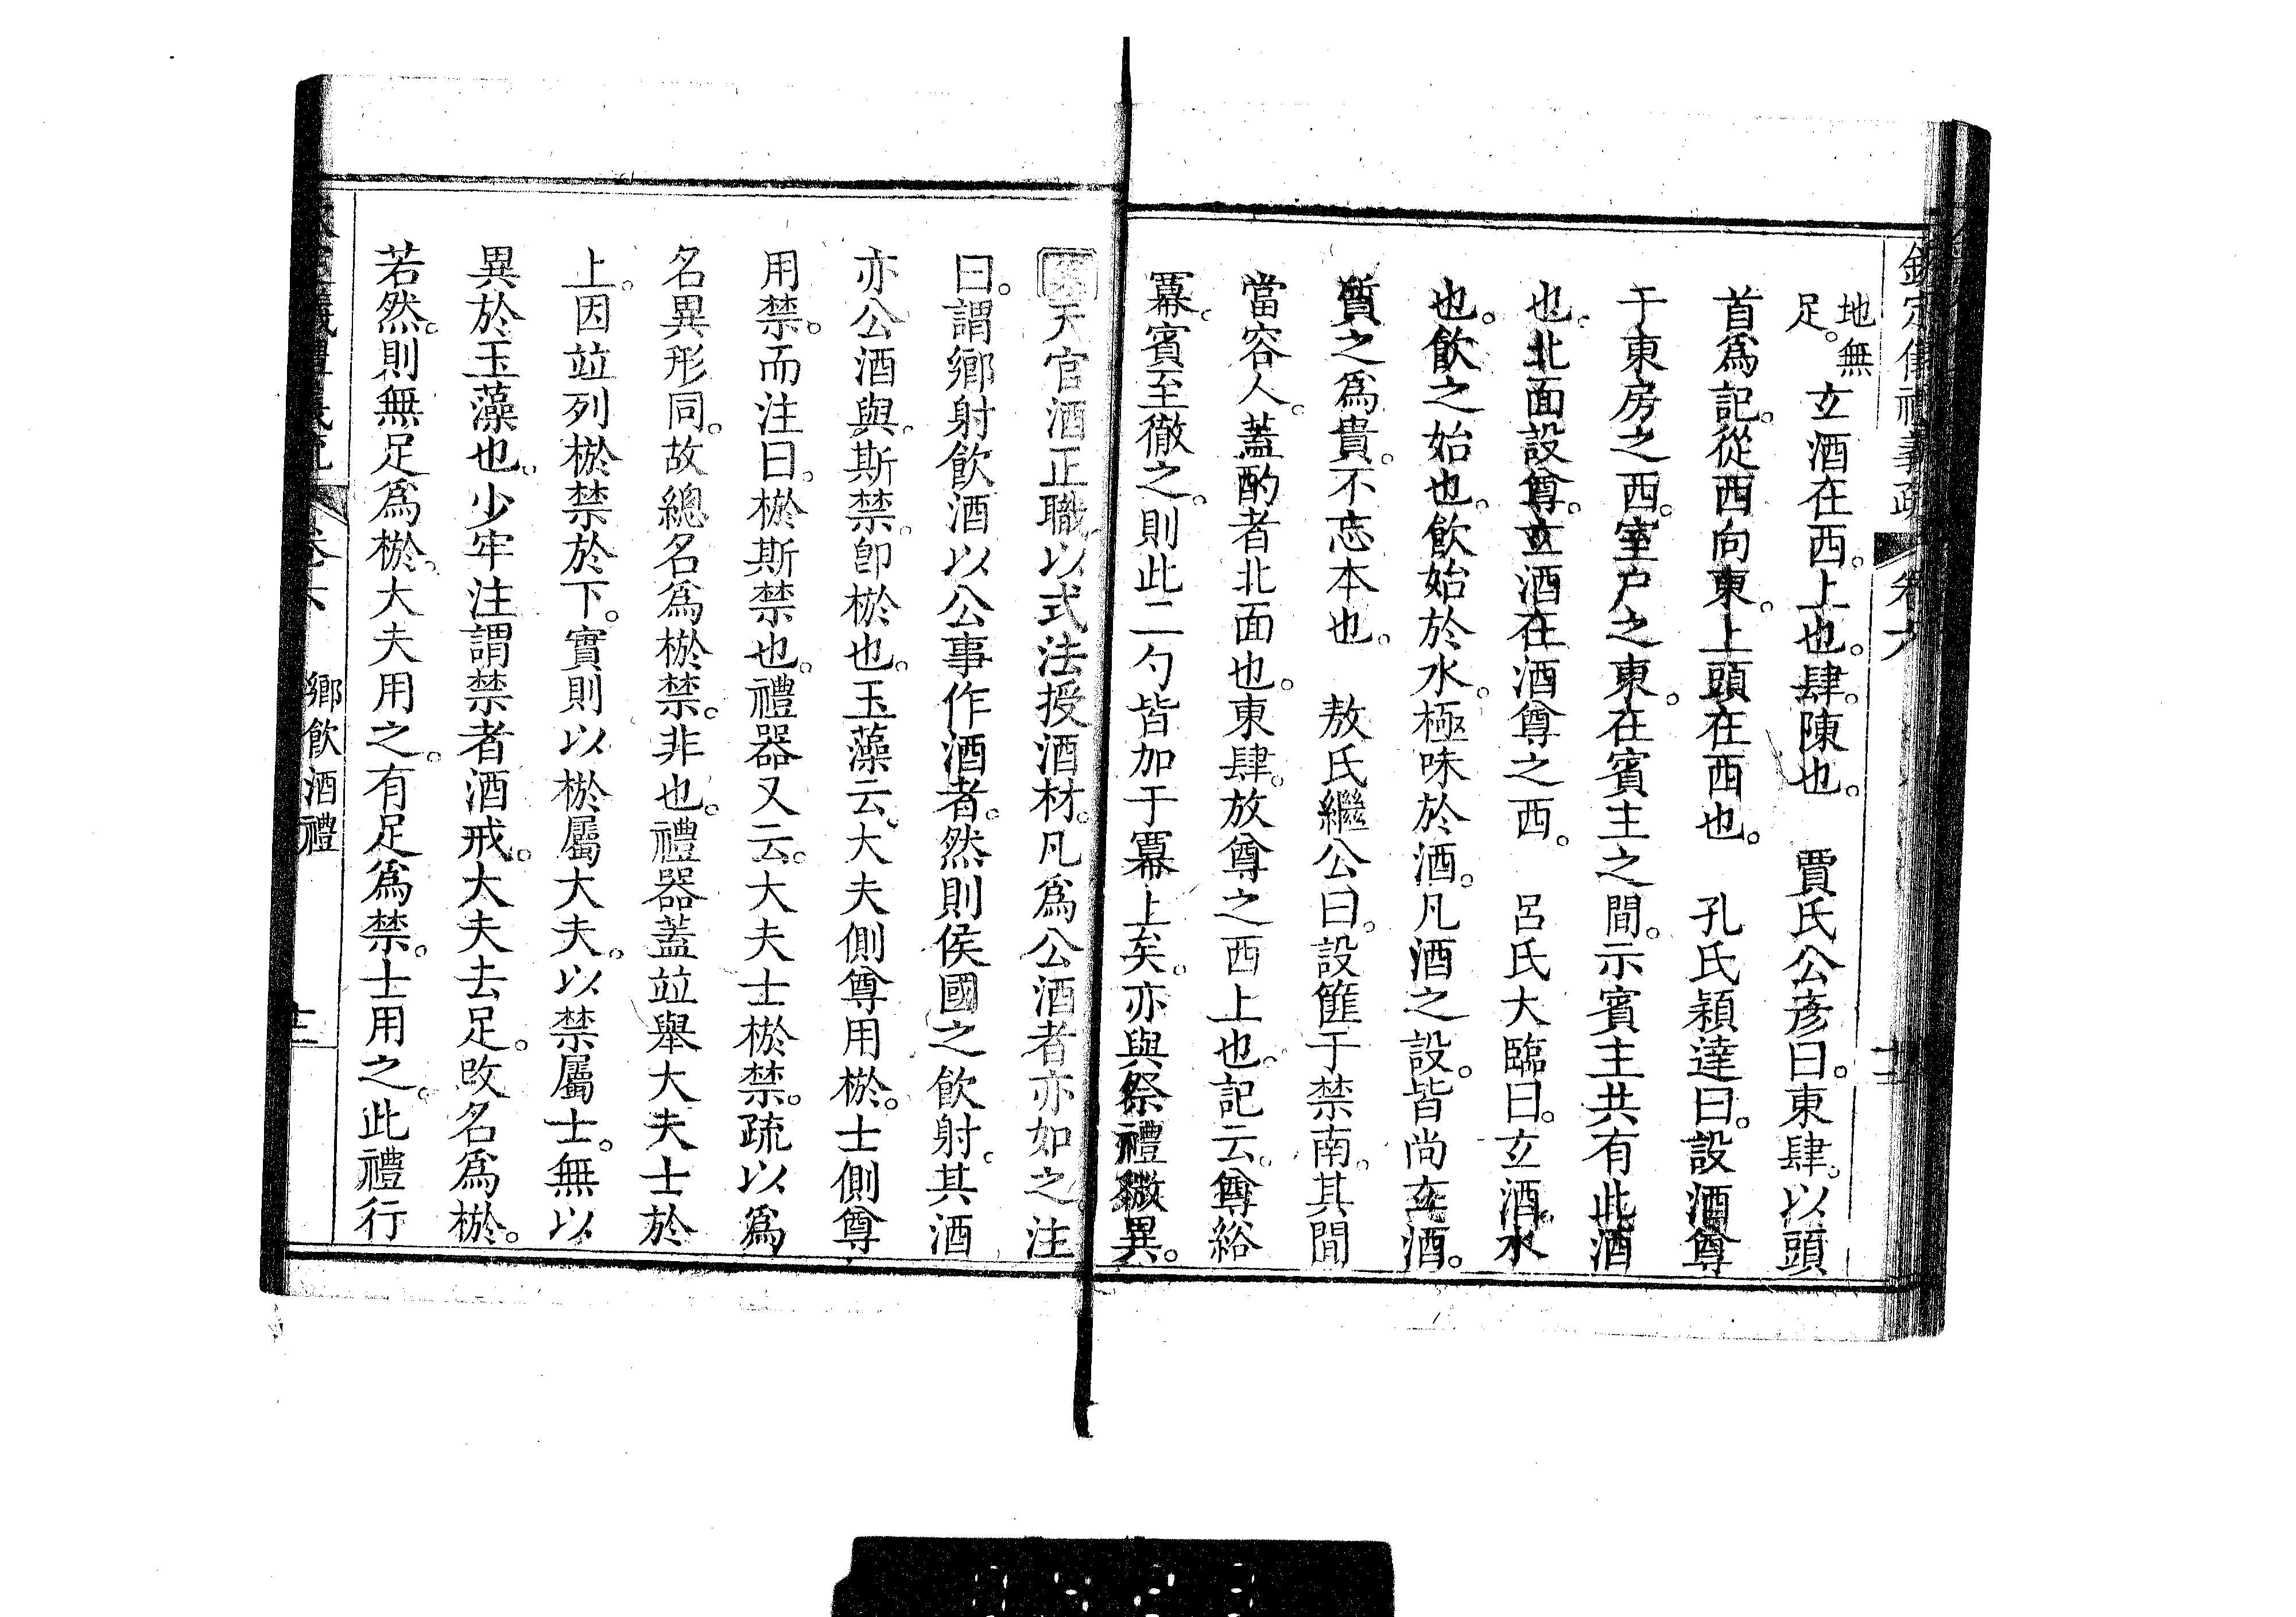 欽定儀禮義疏 卷六
地無足。玄酒在西。上也。肆。陳也。 賈氏公彥曰。東肆。以頭
首爲記。從西向東。上頭在西也。 孔氏穎達曰。設酒尊
于東房之西。室戶之東。在賓主之間。示賓主共有此酒
也。北面設尊。玄酒在酒尊之西。 呂氏大臨曰。玄酒。水
也。飲之始也。飲始於水。極味於酒。凡酒之設。皆尚玄酒。
質之爲貴。不忘本也。 敖氏繼公曰。設篚于禁南。其間
當容人。蓋酌者北面也。東肆。放尊之西上也。記云。尊綌
冪。賓至徹之。則此二勺皆加于冪上矣。亦與祭禮微異。
天官酒正職以式法授酒材。凡爲公酒者亦如之。注
曰。謂鄉射飲酒以公事作酒者。然則侯國之飲射。其酒
亦公酒與。斯禁。卽棜也。玉藻云。大夫側尊用棜。士側尊
用禁。而注曰。棜斯禁也。禮器又云。大夫士棜禁。疏以爲
名異形同。故總名爲棜禁。非也。禮器蓋竝舉大夫士於
上。因竝列棜禁於下。實則以棜屬大夫。以禁屬士。無以
異於玉藻也。少牢注謂禁者酒戒。大夫去足。改名爲棜。
若然。則無足爲棜。大夫用之。有足爲禁。士用之。此禮行
卷六 鄉飲酒禮